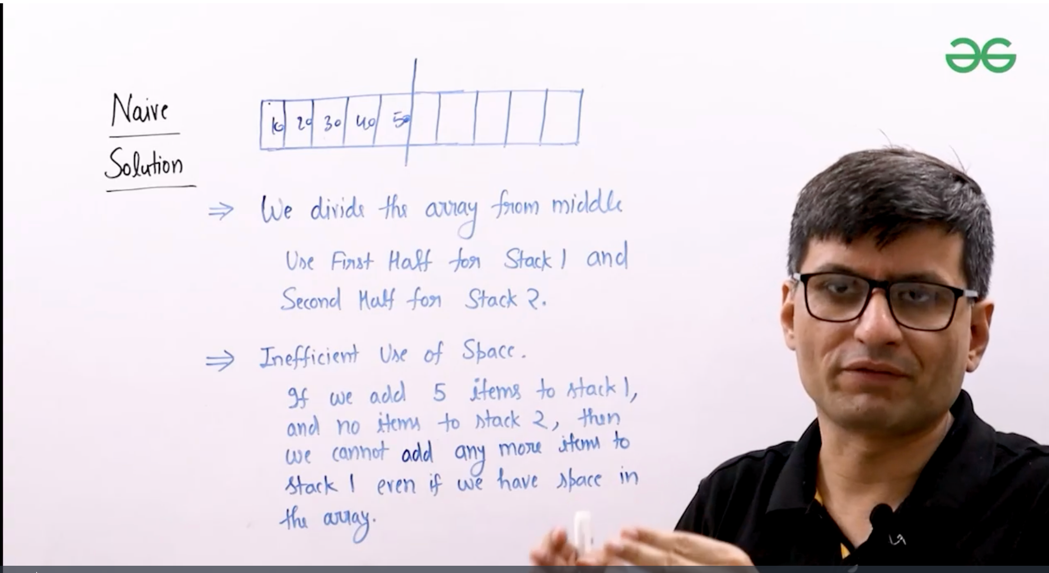 Naive
Solution
10 20 30 40 50
⇒ We divide the array from middle
Use First Half for Stack 1 and
Second Half for Stack 2.
⇒ Inefficient Use of Space.
If we add 5 items to stack 1,
and no items to stack 2, then
we cannot add any more items to
stack 1 even if we have space in
the array.